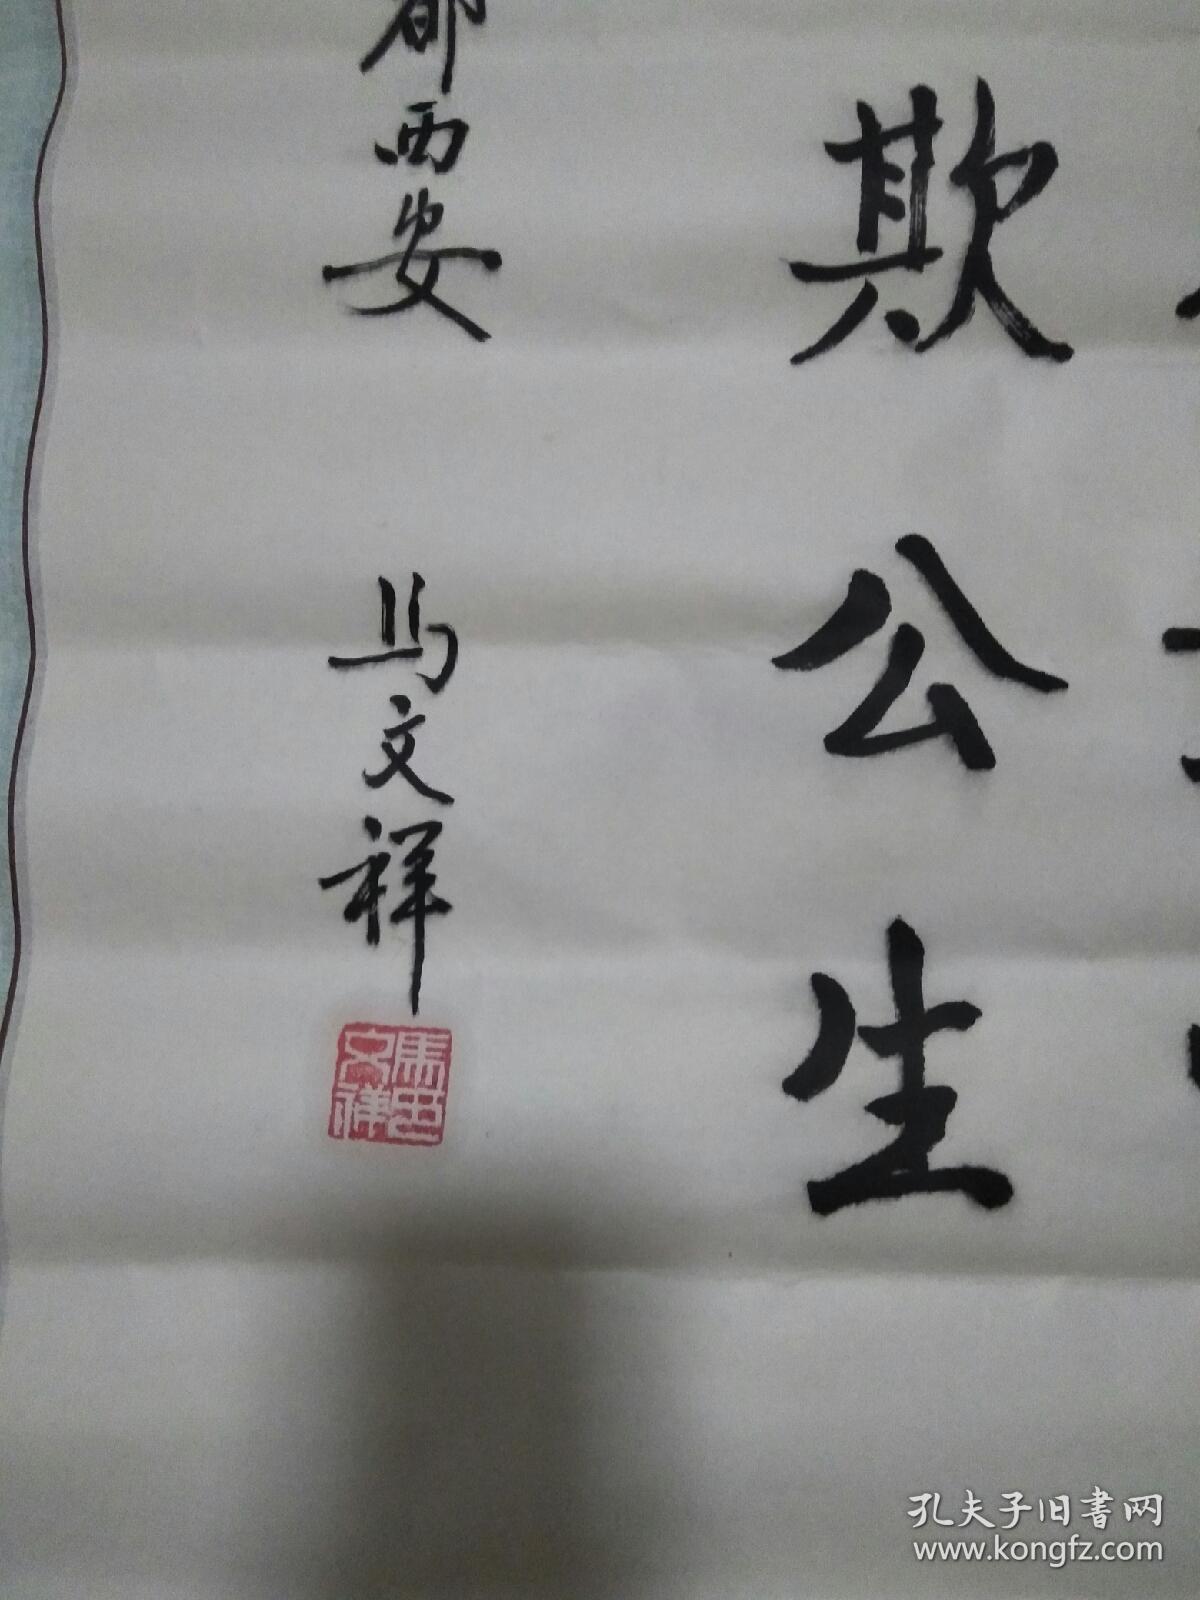 欺公生
都西安 马文祥
馬
文祥
孔夫子旧書网
www.kongfz.com